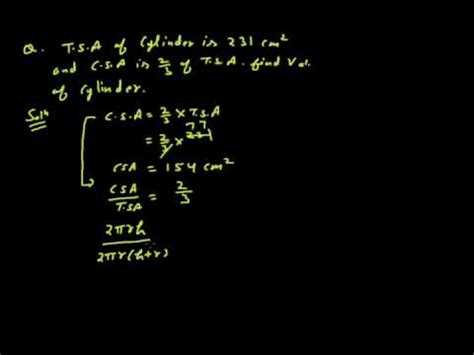 Q. T.S.A of Cylinder is 231 cm²
and C.S.A is 2/3 of T.S.A. find Vol.
of cylinder.
Soln
C.S.A = 2/3 × T.S.A
77
= 2/3 × 231
CSA = 154 cm²
CSA/TSA = 2/3
2πrh
2πr(h+r)